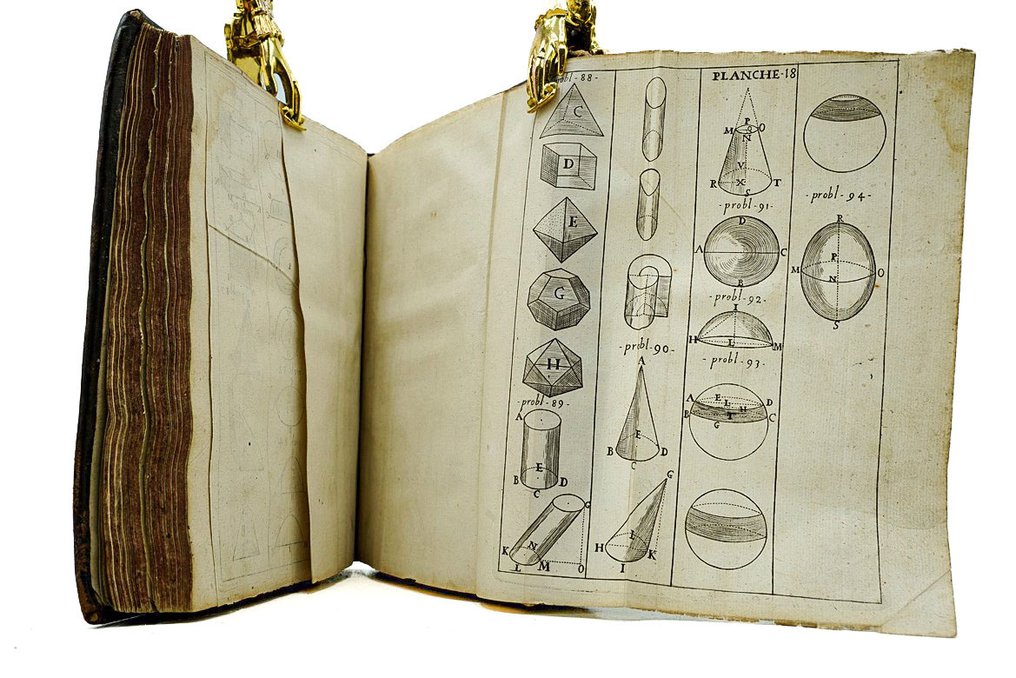 probl-88-
C
D
E
G
H
-probl-89-
A
E
B D
C
G
K N
L M O
-probl-90-
A
E
B D
C
G
H I K
I
PLANCHE-18
P
M O
N
V
R X T
S
-probl-91-
D
A C
E
-probl-92-
I
H L M
-probl-93-
A E L D
B H C
G I
-probl-94-
R
P
M O
N
S